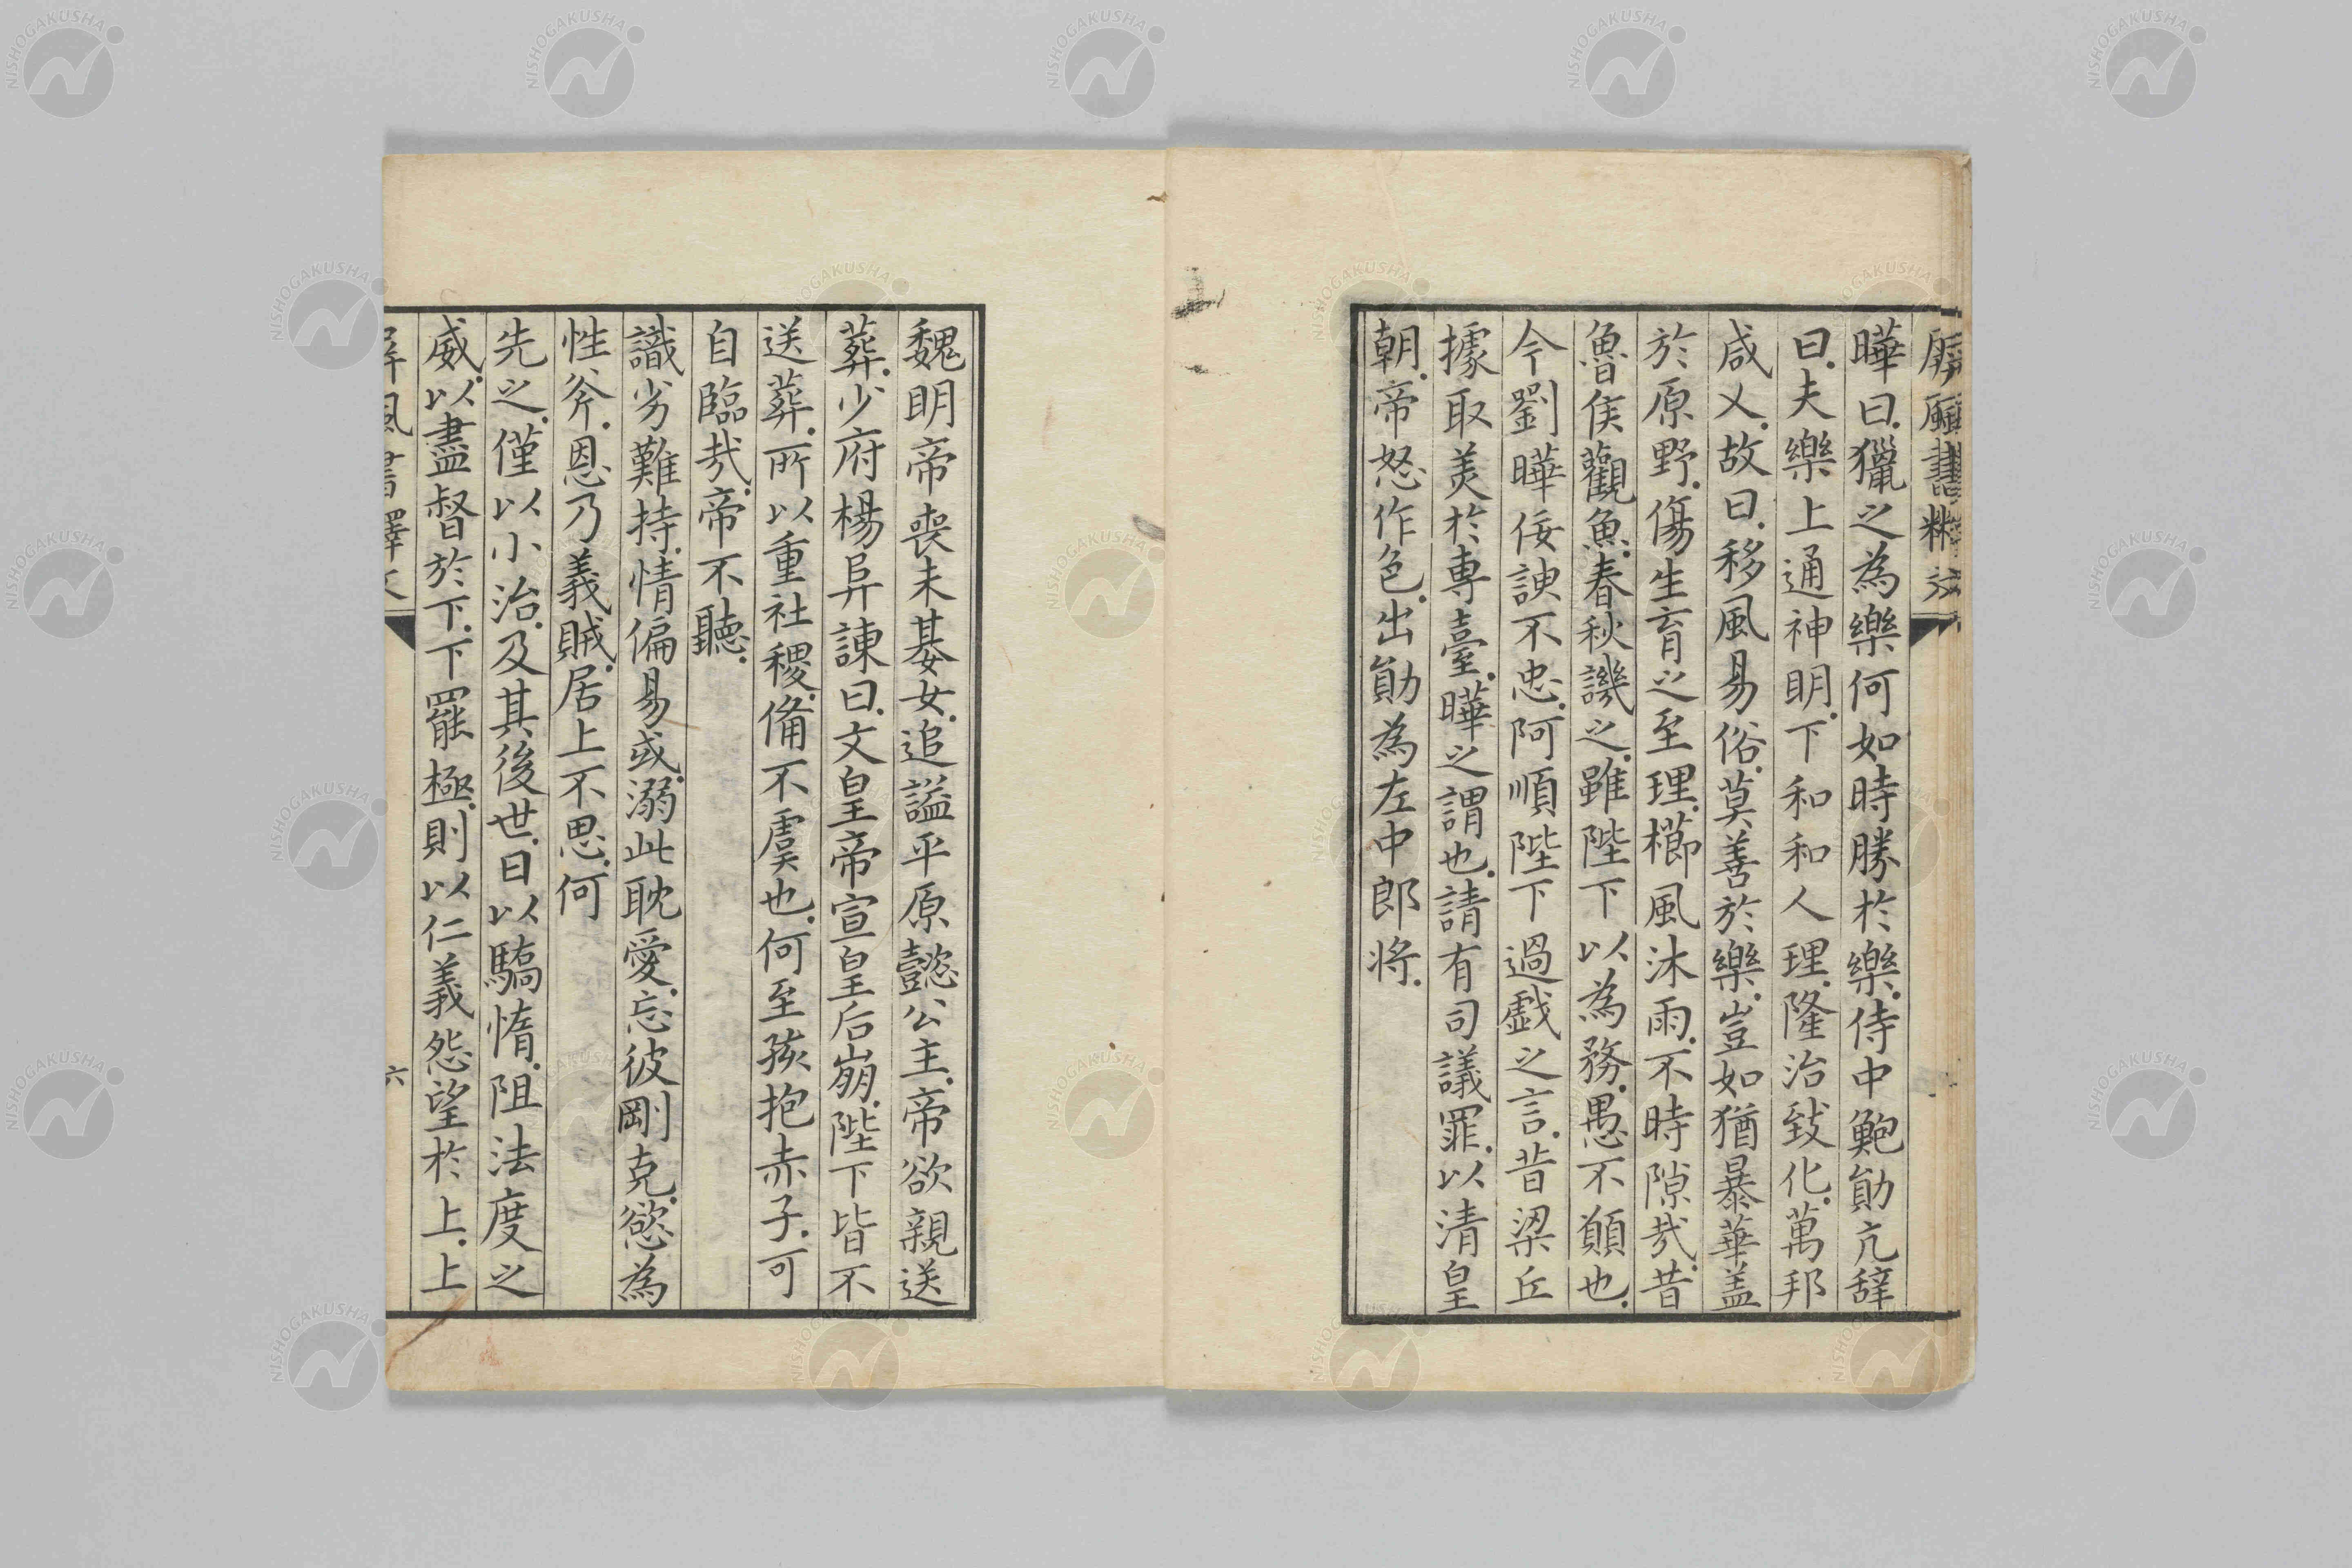 屏風書釋文
曄曰.獵之為樂何如時勝於樂.侍中鮑勛亢辭
曰.夫樂上通神明.下和和人理.隆治致化.萬邦
咸乂.故曰.移風易俗.莫善於樂.豈如猶暴華盖
於原野.傷生育之至理.櫛風沐雨.不時隙哉.昔
魯侯觀魚.春秋譏之.雖陛下以為務.愚不願也.
今劉曄佞諛不忠.阿順陛下過戯之言.昔梁丘
據取羙於専臺.曄之謂也.請有司議罪.以清皇
朝.帝怒作色.出勛為左中郎将.
魏明帝喪未朞女.追謚平原懿公主.帝欲親送
葬.少府楊阜諫曰.文皇帝宣皇后崩.陛下皆不
送葬.所以重社稷.備不虞也.何至孩抱赤子.可
自臨哉.帝不聽.
識劣難持.情偏易或.溺此耽愛.忘彼剛克.慾為
性斧.恩乃義賊.居上不思.何
先之.僅以小治.及其後世.日以驕惰.阻法度之
威.以盡督於下.下罷極.則以仁義怨望於上.上
屏風書釋文
六
NISHOGAKUSHA